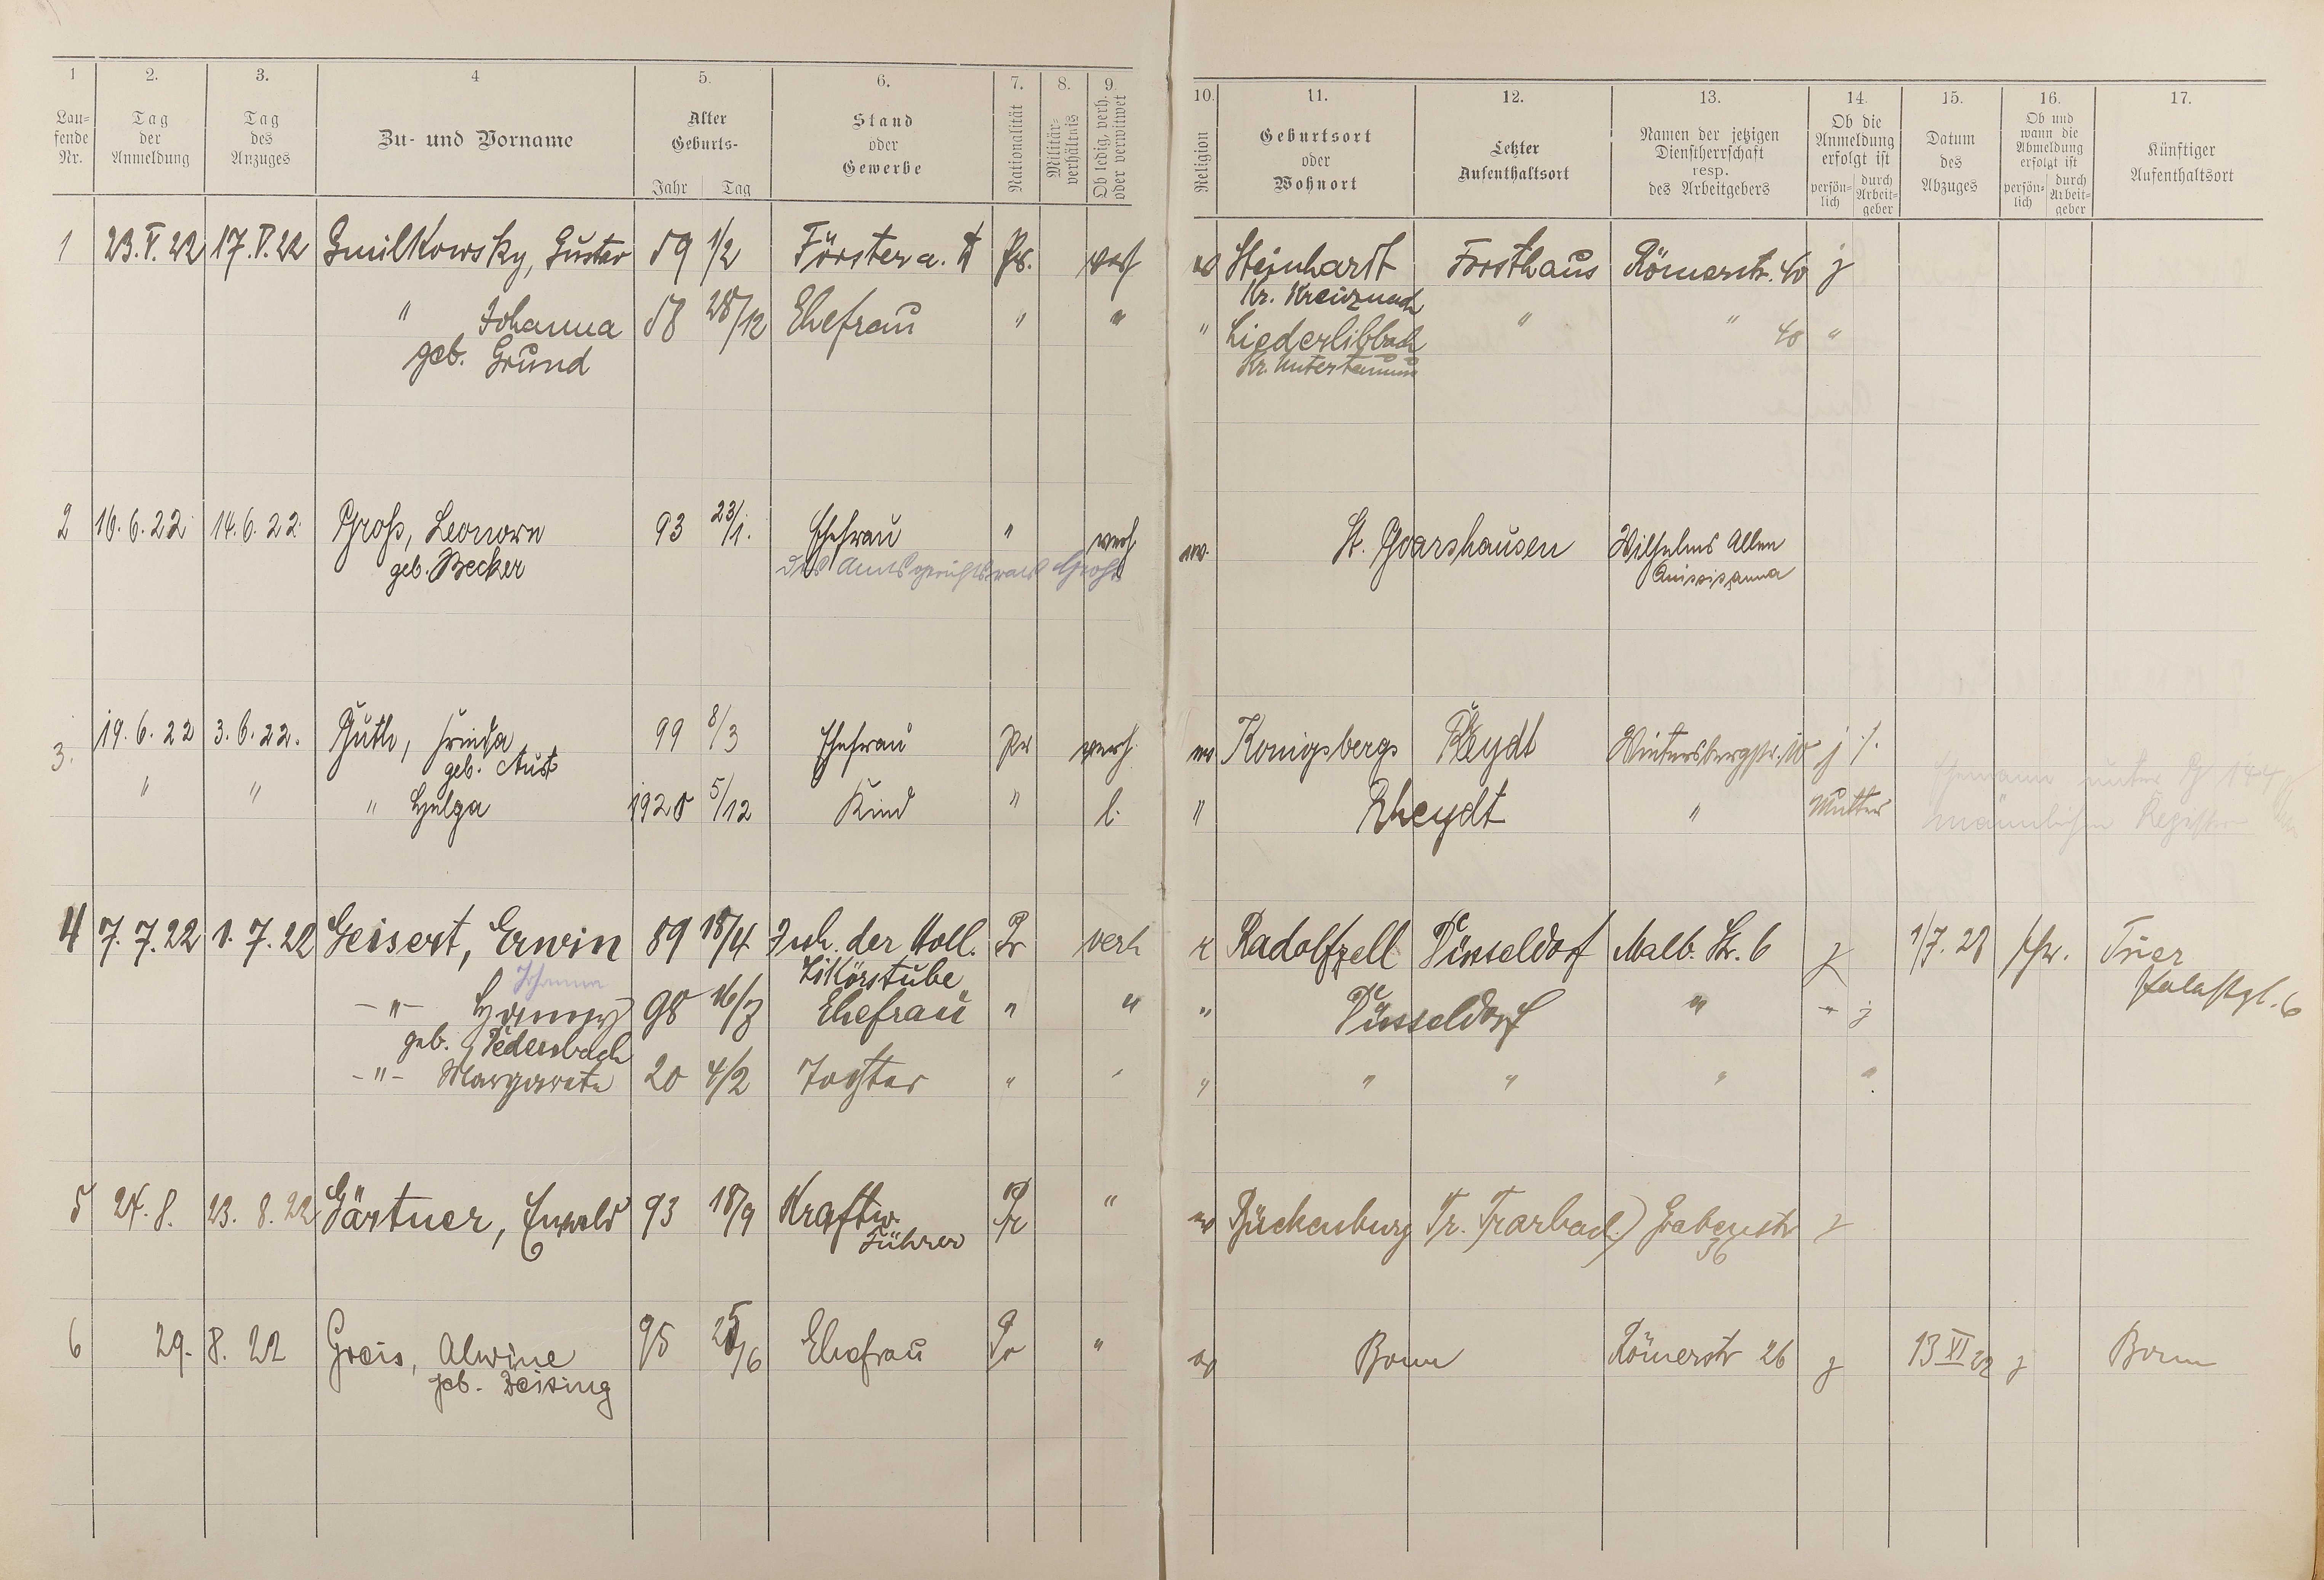 1 2. 3. 4 5. 6. 7. 8. 9. 10. 11. 12. 13. 14. 15. 16. 17.
Lau=
fende
Nr.
Tag
der
Anmeldung
Tag
des
Anzuges
Zu- und Vorname
Alter
Geburts-
Jahr Tag
Stand
oder
Gewerbe
Nationalität
Militär-
verhältnis
Ob ledig, verh.
oder verwitwet
Religion
Geburtsort
oder
Wohnort
Letzter
Aufenthaltsort
Namen der jetzigen
Dienstherrschaft
resp.
des Arbeitgebers
Ob die
Anmeldung
erfolgt ist
persön=
lich
durch
Arbeit=
geber
Datum
des
Abzuges
Ob und
wann die
Abmeldung
erfolgt ist
persön=
lich
durch
Arbeit=
geber
Künftiger
Aufenthaltsort
1 23.V.22 17.V.22 Gmilkowsky, Gustav 59 1/2 Förster a. D Pr. verh ev Steinhardt Forsthaus Römerstr. 40 j
Kr. Kreuznach
" Johanna 58 28/12 Ehefrau " " " " " 40 "
geb. Grund
Kr. Untertaunus
2 16.6.22 14.6.22 Groß, Leonore 93 23/1. Ehefrau " verh. ev. St. Goarshausen
geb. Becker des Amtsgerichtsrats Groß
3. 19.6.22 3.6.22. Guth, 99 8/3 Ehefrau Pr verh. ev Konigsberg Rheydt j /.
geb. Aust
" " " Helga 1920 5/12 Kind " l. " Rheydt " Mutter
Ehemann unter G 144
männlichen Register
4 7.7.22 1.7.22 Geisert, Erwin 89 18/4 Inh. der Holl. Pr verh k Radolfzell Düsseldorf Malb. Str. 6 j 1/7. 28 Trier
Likörstube
Johanna
-"- 98 16/3 Ehefrau " " " Düsseldorf " - j
geb.
-"- Margarete 20 4/2 Tochter " " " " " " "
5 24.8. 23.8.22 Gärtner, Ewald 93 18/9 Kraftw. Pr " ev Bückenburg Tr. Trarbach) Grabenstr j
Führer 36
6 29. 8. 22 Greis, Alwine 95 25/6 Ehefrau Pr " ev Bonn Römerstr 26 j 13 XI 22 j Bonn
geb.